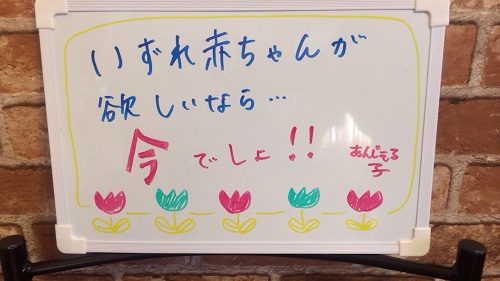 いずれ赤ちゃんが
欲しいなら…
今でしょ!!
あんじぇる